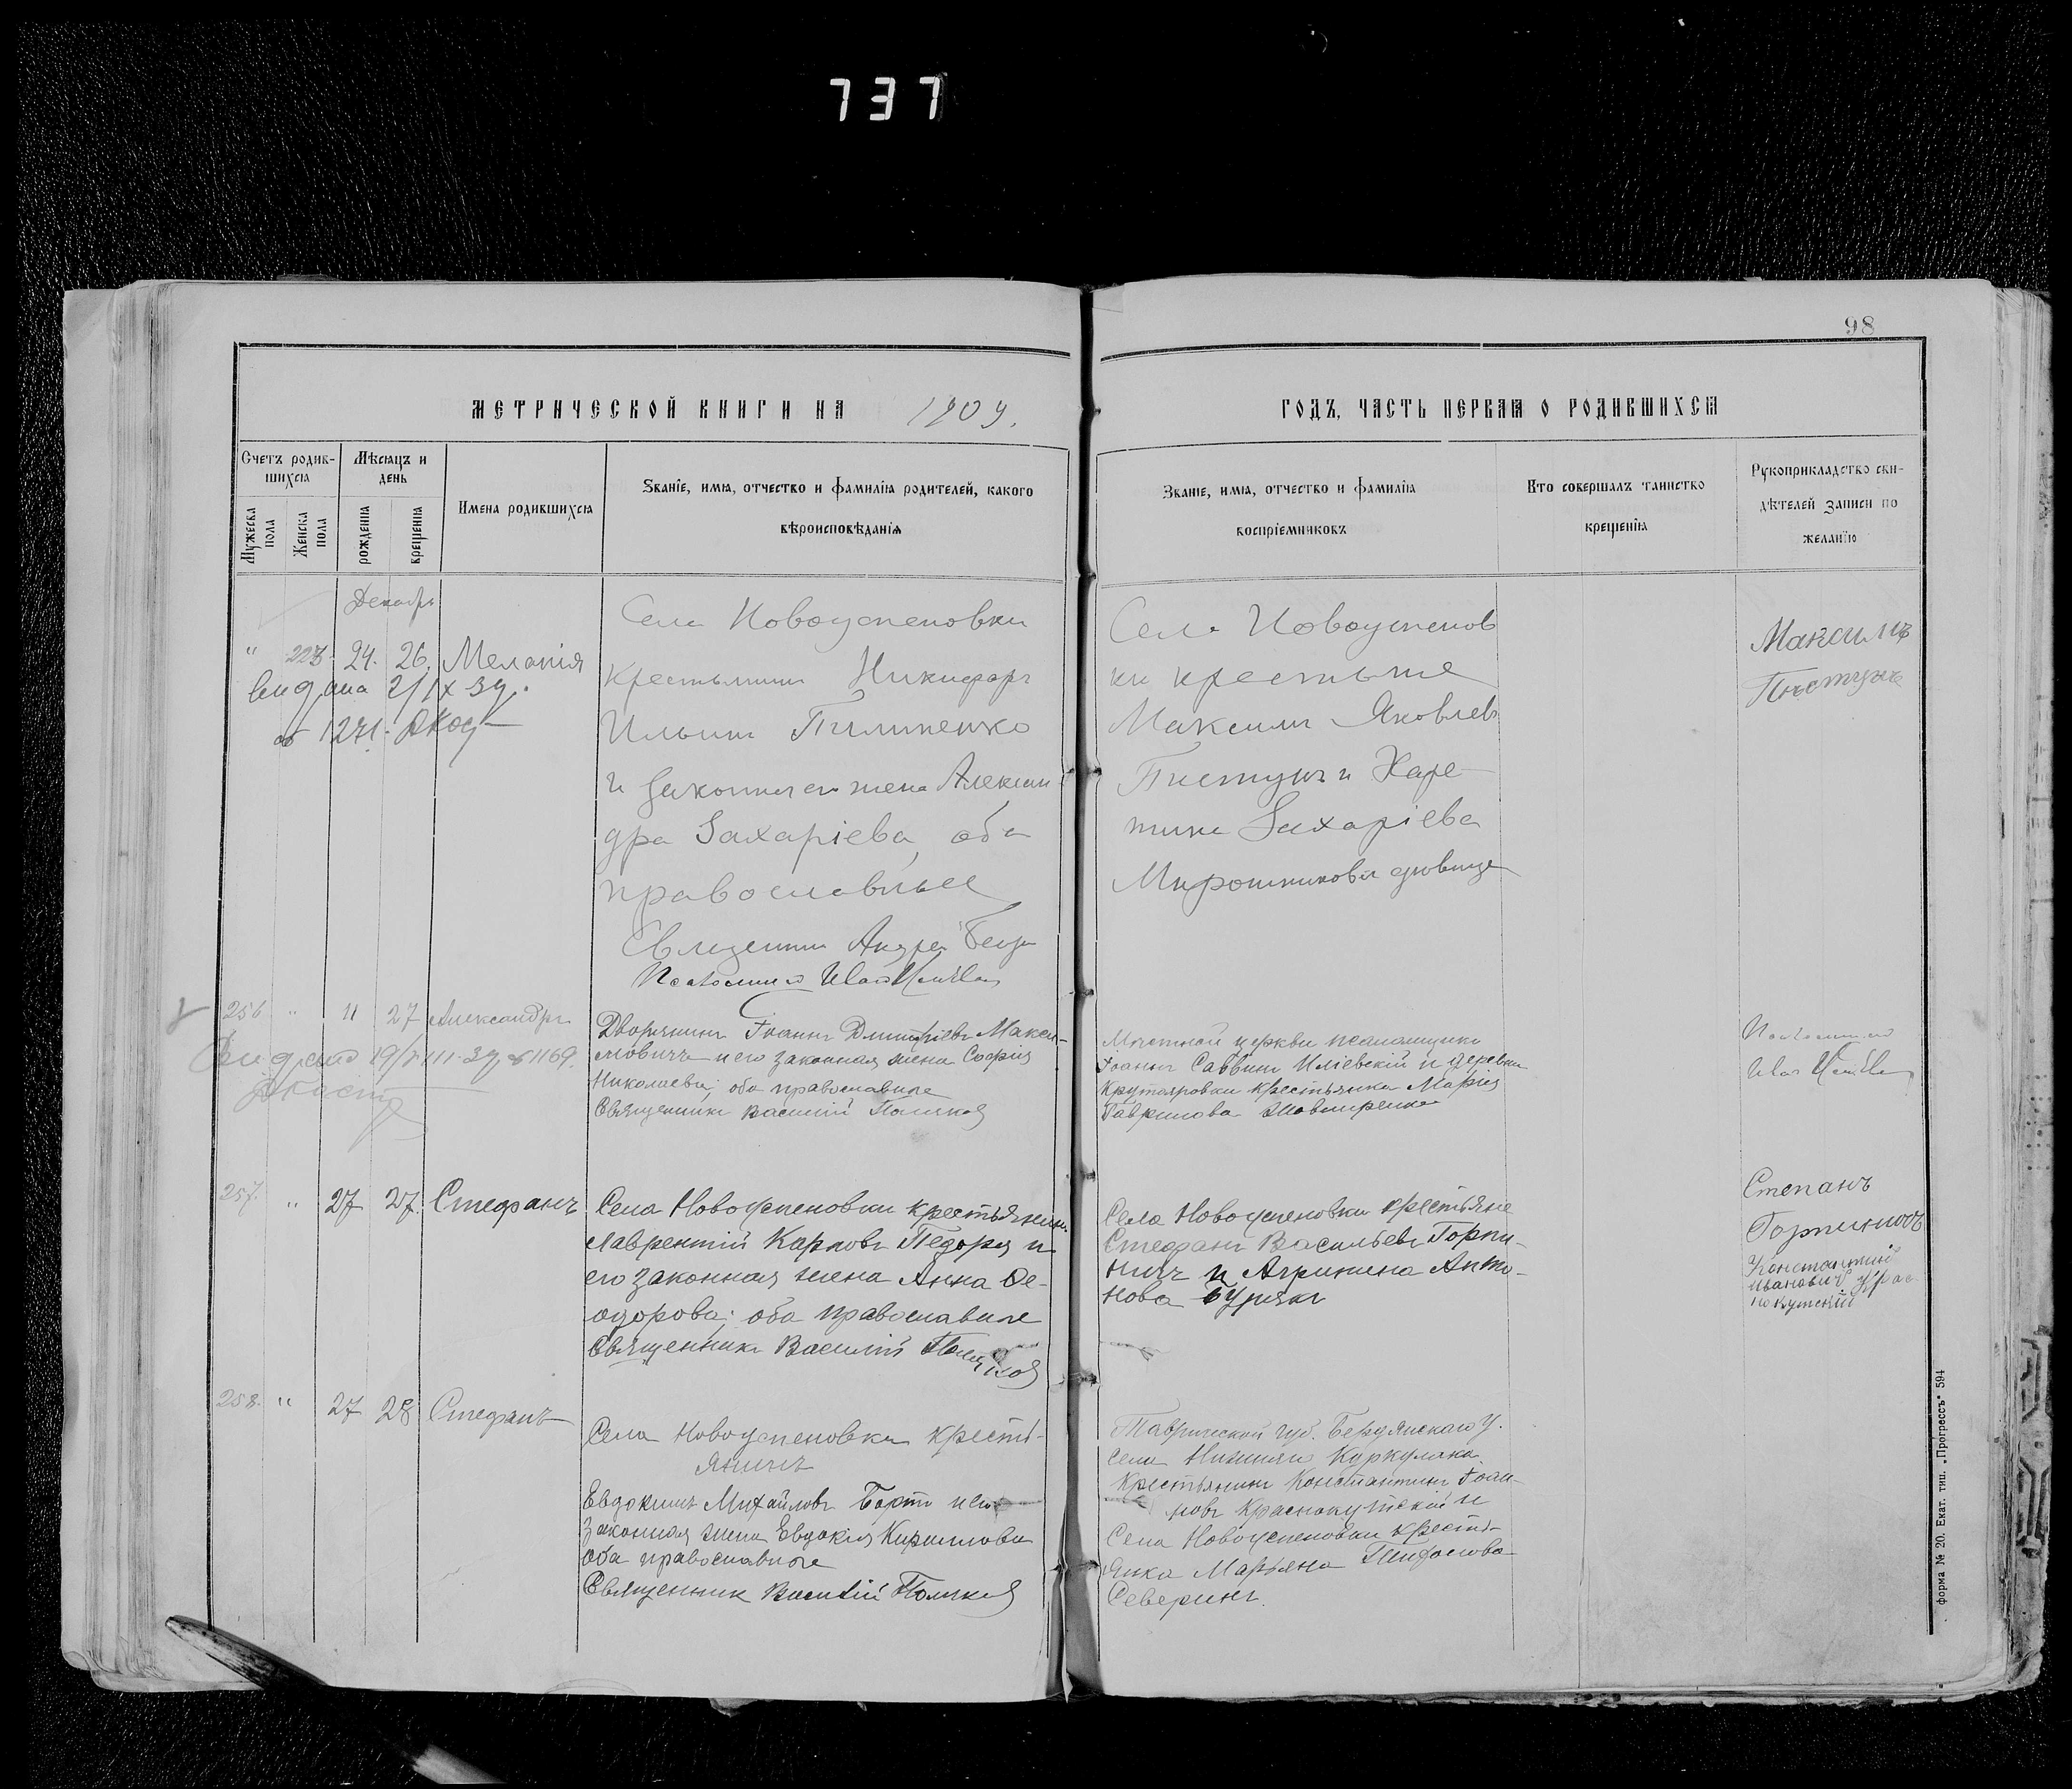 737
98
МЕТРИЧЕСКОЙ КНИГИ НА 1909.
ГОДЪ, ЧАСТЬ ПЕРВАЯ О РОДИВШИХСЯ
Счетъ родив-
шихся
Мужеска
пола
Женска
пола
Мѣсяцъ и
день
рожденія
крещенія
Имена родившихся
Званіе, имя, отчество и фамилія родителей, какого
вѣроисповѣданія
Званіе, имя, отчество и фамилія
воспріемниковъ
Кто совершалъ таинство
крещенія
Рукоприкладство сви-
дѣтелей записи по
желанію
Декабрь
" 223. 24. 26. Меланія
видана 2/IX-39.
1271.
Села Новоуспеновки
крестьянинъ Никифоръ
Ильинъ Пилипенко
и законная его жена Алексан
дра Захаріева, оба
православные
Села Новоуспенов
ки крестьяне
Максимъ Яковлевъ
Пистунъ и Харе
тина Захаріева
Мирошникова вдовица
Максимъ
Пистунъ
256 " 11 27 Александръ
Видано 19/VIII-39 1169.
Дворянинъ Іоаннъ Дмитріевъ Макси-
мовичъ и его законная жена Софія
Николаева; оба православные
Священникъ Василій Поляковъ
Мѣстной церкви псаломщикъ
Іоаннъ Саввинъ Иліевскій и деревни
Крутояровки крестьянка Марія
Гаврилова
257. " 27 27. Стефанъ
Села Новоуспеновки крестьянинъ
Лаврентій Карповъ Педоря и
его законная жена Анна Ѳе-
одорова; оба православные
Священникъ Василій Поляковъ
Села Новоуспеновки крестьяне
Стефанъ Васильевъ Горпи-
ничъ и Агрипина Анто-
нова Бурякъ
Степанъ
Горпиничъ
Константинъ
Ивановичъ Крас
нокутскій
258. " 27 28 Стефанъ
Села Новоуспеновки кресть-
янинъ
Евдокимъ Михайловъ Бортъ и его
законная жена Евдокія Кириллова
оба православные
Священникъ Василій Поляковъ
Таврической губ. Бердянскаго у.
села Нижняго Куркулака
крестьянинъ Константинъ Іоан-
новъ Краснокутскій и
Села Новоуспеновки кресть-
янка Марьяна
Северинъ.
форма № 20. Екат. тип. „Прогрессъ" 594